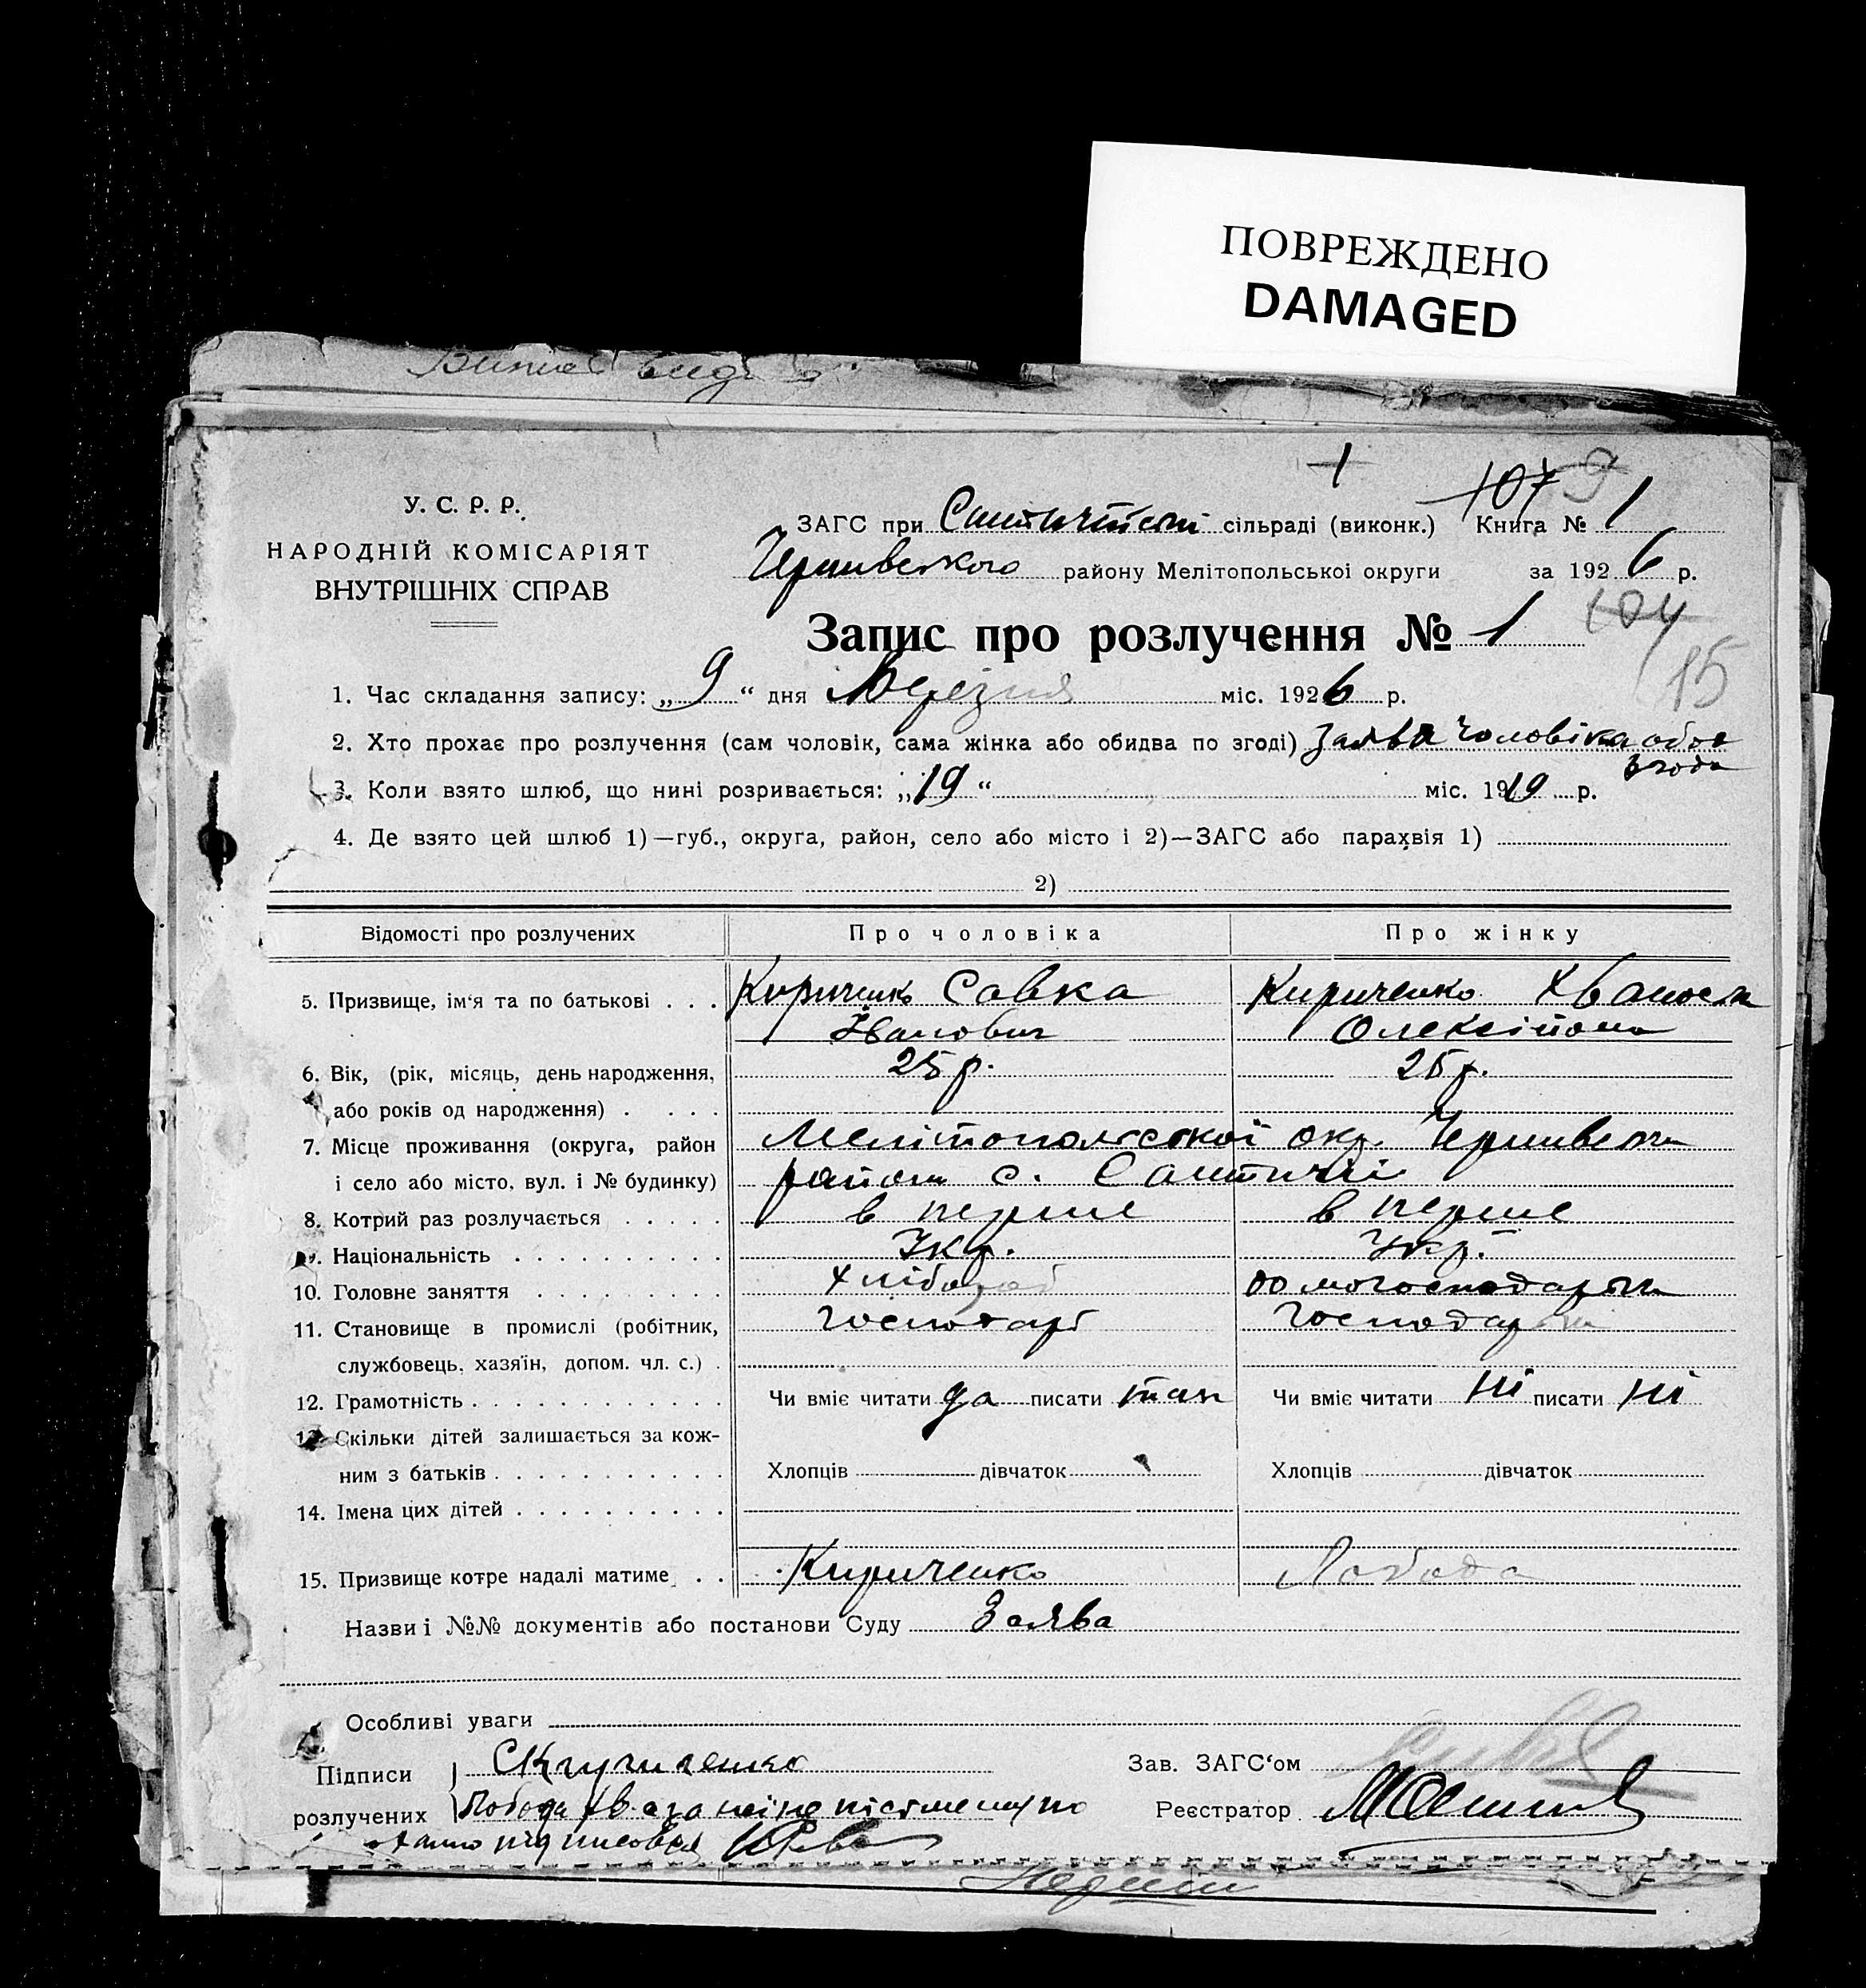 ПОВРЕЖДЕНО
DAMAGED
У. С. Р. Р.
НАРОДНІЙ КОМІСАРІЯТ
ВНУТРІШНІХ СПРАВ
1
107 9
ЗАГС при сільраді (виконк.) Книга № 1
району Мелітопольської округи за 1926 р.
104
Запис про розлучення № 1
15
1. Час складання запису: „ 9 “ дня Березня міс. 1926 р.
2. Хто прохає про розлучення (сам чоловік, сама жінка або обидва по згоді) Заява чоловіка обоє
згода
3. Коли взято шлюб, що нині розривається: „19“ міс. 1919 р.
4. Де взято цей шлюб 1)—губ., округа, район, село або місто і 2)—ЗАГС або парахвія 1)
2)
Відомості про розлучених Про чоловіка Про жінку
5. Призвище, ім‘я та по батькові . . . Кириченко Савка Кириченко
Іванович
6. Вік, (рік, місяць, день народження, 25 р. 25 р.
або років од народження) . . . .
7. Місце проживання (округа, район Мелітопольської окр.
і село або місто, вул. і № будинку) района с.
8. Котрий раз розлучається . . . . . в перше в перше
9. Національність . . . . . . . . . . Укр. Укр.
10. Головне заняття . . . . . . . . . хлібороб домогосподарка
11. Становище в промислі (робітник, господарь господарка
службовець, хазяїн, допом. чл. с.) .
12. Грамотність . . . . . . . . . . . . Чи вміє читати да писати так Чи вміє читати ні писати ні
13. Скільки дітей залишається за кож-
ним з батьків . . . . . . . . . . . Хлопців дівчаток Хлопців дівчаток
14. Імена цих дітей . . . . . . . . . .
15. Призвище котре надалі матиме . . Кириченко Лобода
Назви і №№ документів або постанови Суду Заява
Особливі уваги
Підписи С Кириченко Зав. ЗАГС‘ом
розлучених Лобода Хв. а за неї неписьменну по Реєстратор
підписався